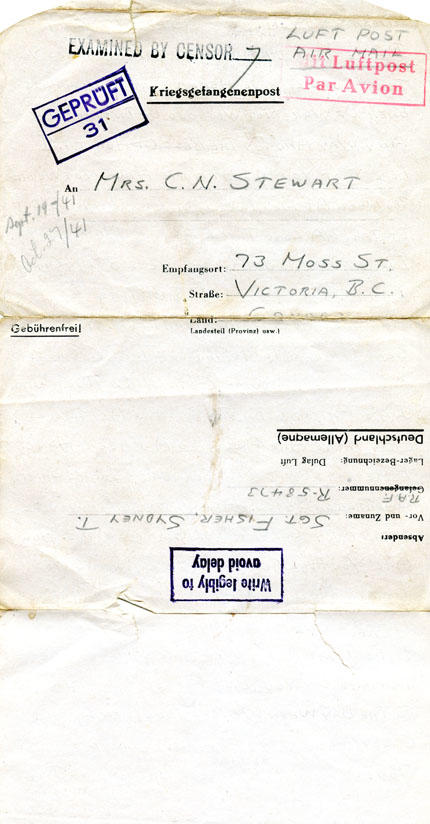 LUFT POST
AIR MAIL
EXAMINED BY CENSOR 7
Mit Luftpost
Par Avion
Kriegsgefangenenpost
GEPRÜFT
31
An MRS. C. N. STEWART
Sept. 19-/41
Oct. 27/41
Empfangsort: 73 MOSS ST.
Straße: VICTORIA, B.C.
Land: CANADA
Landesteil (Provinz) usw.)
Gebührenfrei!
Write legibly to
avoid delay
Absender:
Vor- und Zuname: SGT. FISHER, SYDNEY T.
Gefangenennummer: R.A.F. R-58473
Lager-Bezeichnung: Dulag Luft
Deutschland (Allemagne)